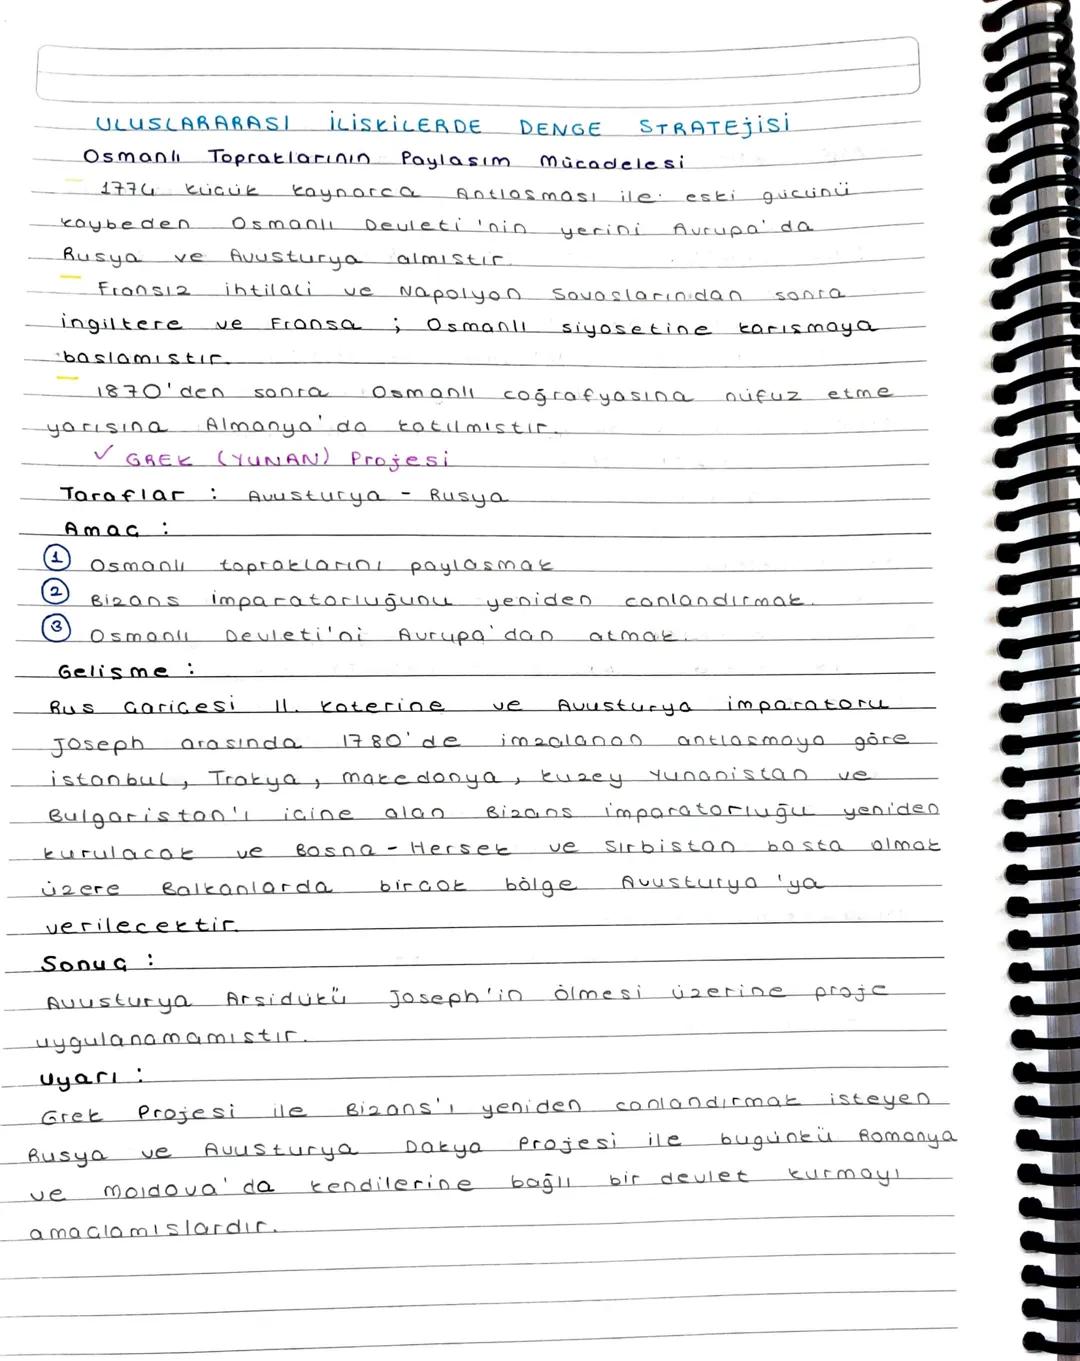 ULUSLARARASI İLİSKİLERDE DENGE STRATEjİSİ
Osmanlı Topraklarının Paylasım Mücadelesi
1774 Kücük Kaynarca Antlasması ile eski gücünü
kaybeden Osmanlı Devleti'nin yerini Avrupa'da
Rusya ve Avusturya almıstır.
Fransız ihtilali ve Napolyon Savaslarından sonra
ingiltere ve Fransa ; Osmanlı siyasetine karısmaya
baslamıstır.
1870'den sonra Osmanlı coğrafyasına nüfuz etme
yarısına Almanya'da katılmıstır.
✓ GREK (YUNAN) Projesi
Taraflar : Avusturya - Rusya
Amac :
1 Osmanlı topraklarını paylasmak
2 Bizans imparatorluğunu yeniden canlandırmak.
3 Osmanlı Devleti'ni Avrupa'dan atmak.
Gelisme :
Rus Caricesi II. Katerine ve Avusturya imparatoru
Joseph arasında 1780'de imzalanan antlasmaya göre
istanbul, Trakya, makedonya, kuzey Yunanistan ve
Bulgaristan'ı icine alan Bizans imparatorluğu yeniden
kurulacak ve Bosna-Hersek ve Sırbistan basta olmak
üzere Balkanlarda bircok bölge Avusturya'ya
verilecektir.
Sonuc :
Avusturya Arsidükü Joseph'in ölmesi üzerine proje
uygulanamamıstır.
Uyarı :
Grek Projesi ile Bizans'ı yeniden canlandırmak isteyen
Rusya ve Avusturya Dakya Projesi ile bugünkü Romanya
ve moldova'da kendilerine bağlı bir devlet kurmayı
amaclamıslardır.